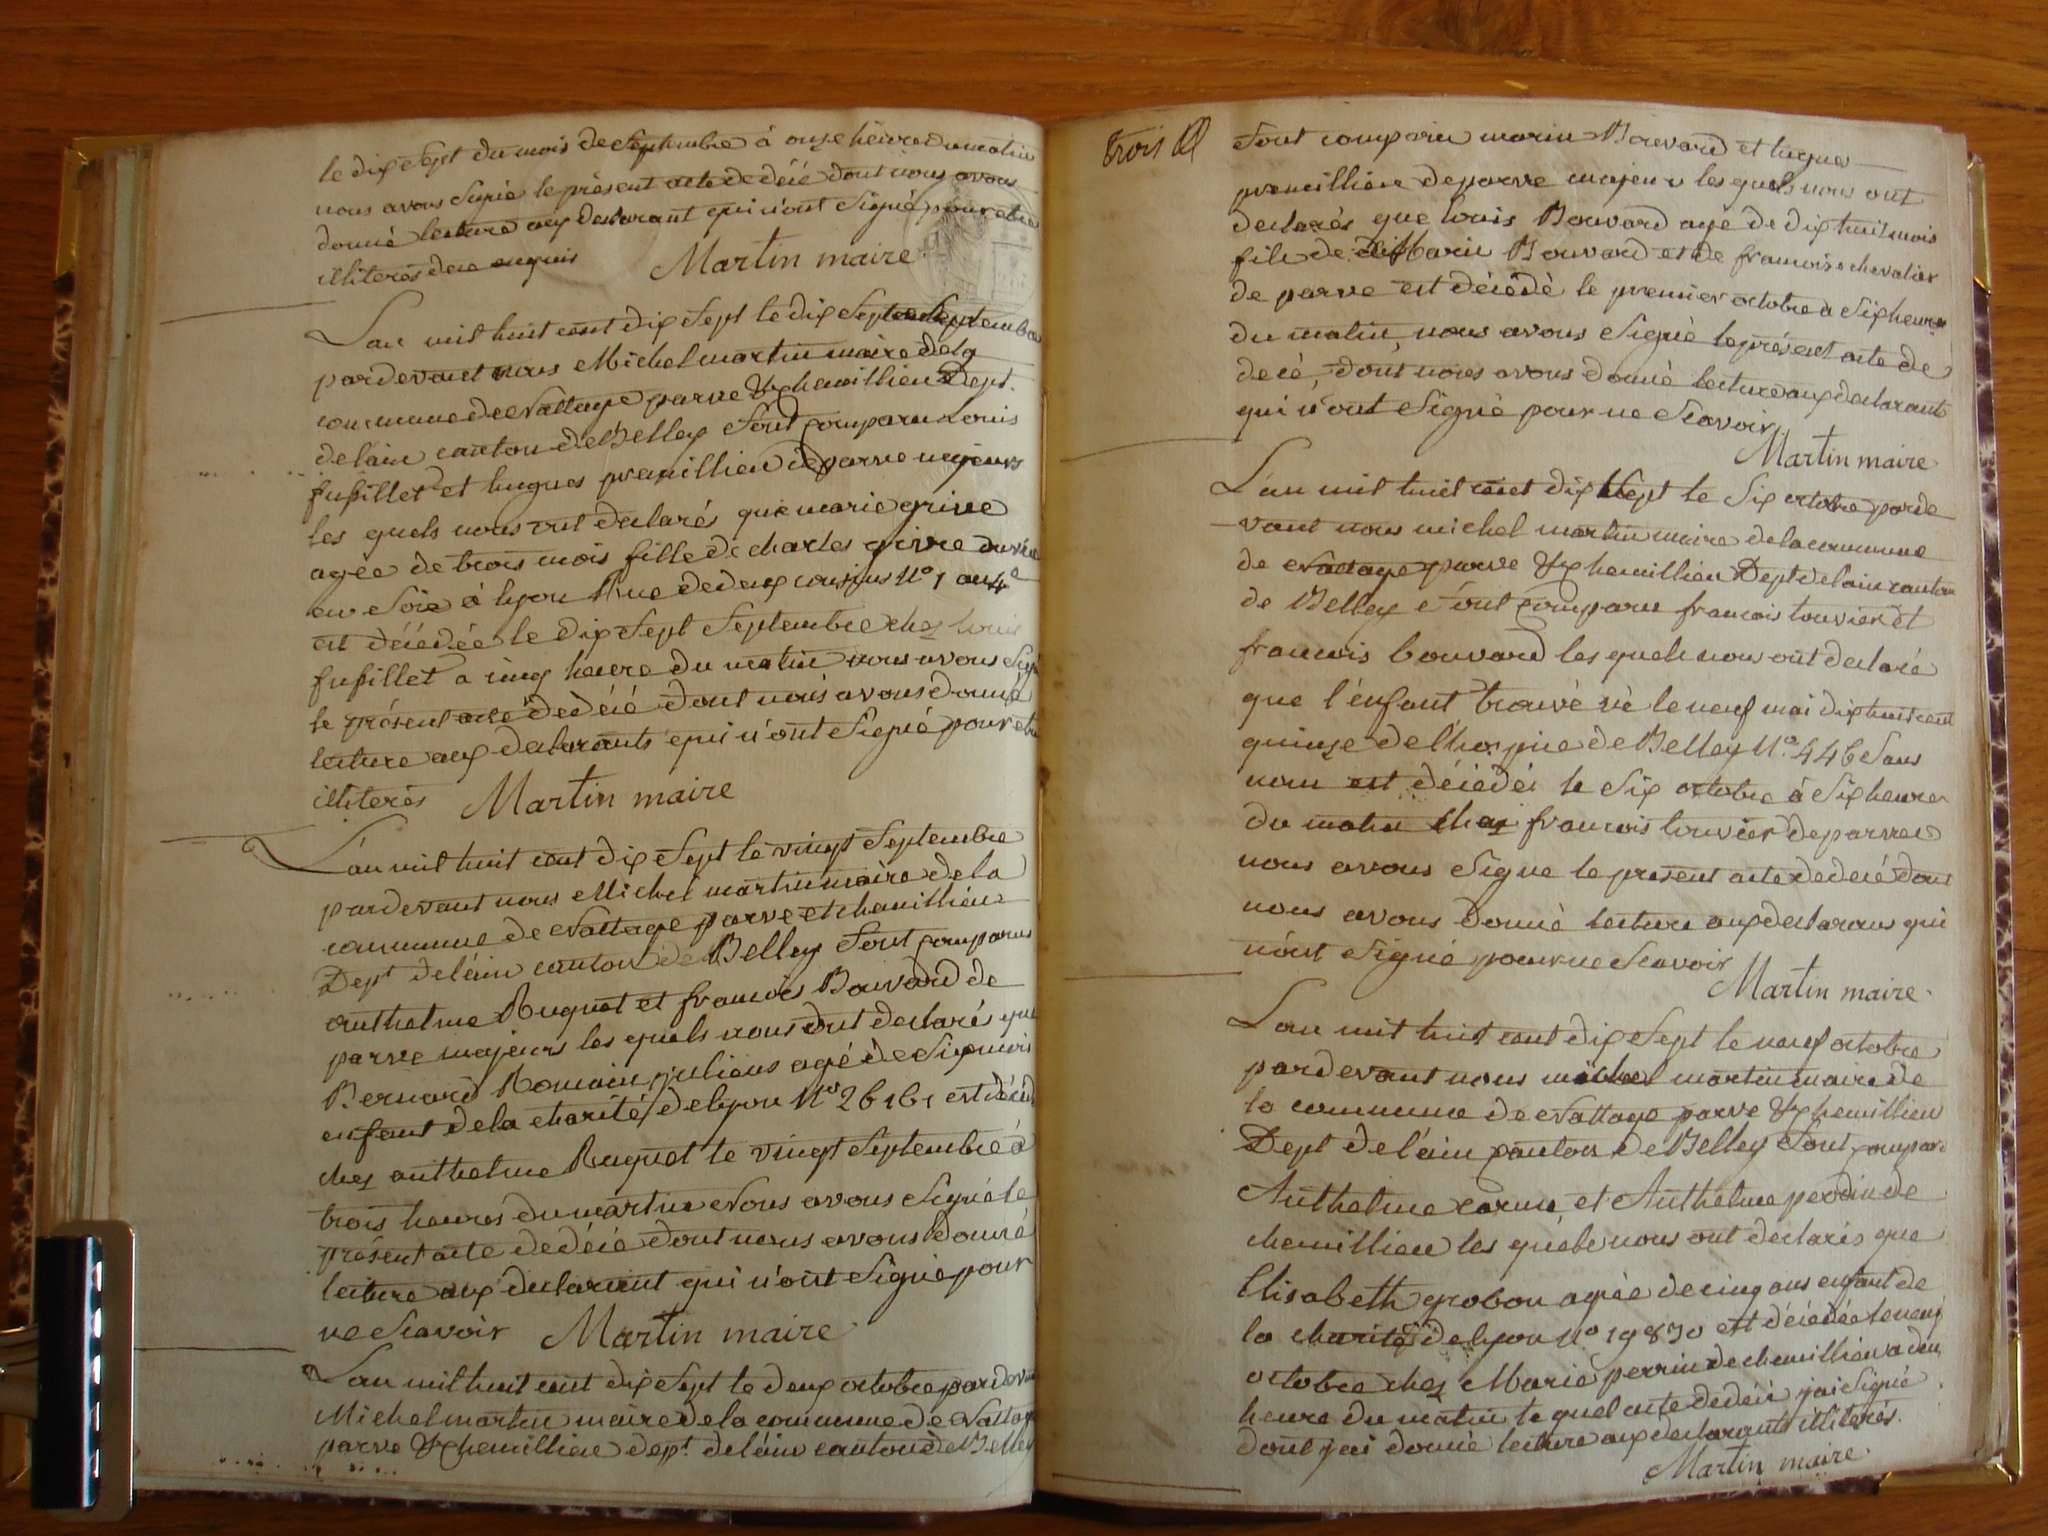 le dix Sept du mois de Septembre à onze heures du matin
nous avons Signé le présent acte de décé dont nous avons
donné lecture aux declarant qui n'ont Signé pour etre
illiterés de ce enquis Martin maire
L'an mil huit cent dix Sept le dix Sept Septembre
pardevant nous Michel martin maire de la
commune de Nattage parve & chemillieu Dept.
de l'ain canton de Belley Sont comparu Louis
fusillet et hugues premillieu de parve majeurs
les quels nous ont declarés que marie grivre
agée de trois mois fille de charles givre
en Soie à lyon Rue de deux cousins No 1 au 4e
est décédée le dix Sept Septembre chez Louis
fusillet a cinq heure du matin nous avons Signé
le présent acte de décé dont nous avons donné
lecture aux declarants qui n'ont Signé pour etre
illiterés Martin maire
L'an mil huit cent dix Sept le vingt Septembre
pardevant nous Michel martin maire de la
commune de Nattage parve et chemillieu
Dept de l'ain canton de Belley Sont comparus
anthelme Ruguet et francois Bouvard de
parve majeurs les quels nous ont declarés que
Bernard Romain juliens agé de Six mois
enfant de la charité de lyon No 26161 est décédé
chez anthelme Ruguet le vingt Septembre à
trois heures du martin Nous avons Signé le
présent acte de décé dont nous avons donné
lecture aux declarant qui n'ont Signé pour
ne Scavoir Martin maire
L'an mil huit cent dix Sept le deux octobre pardevant
Michel martin maire de la commune de Nattage
parve & chemillieu dept. de l'ain canton de Belley
trois
Sont comparu marin Bouvard et hugues
premillieu de parve majeurs les quels nous ont
declarés que louis Bouvard agé de dix huit mois
fils de Marin Bouvard et de francoise chevalier
de parve est décédé le premier octobre a Six heures
du matin, nous avons Signé le présent acte de
décé, dont nous avons donné lecture aux declarants
qui n'ont Signé pour ne Scavoir
Martin maire
L'an mil huit cent dix Sept le Six octobre parde
vant nous michel martin maire de la commune
de Nattage parve & chemillieu Dept de l'ain canton
de Belley Sont comparu francois louvier et
francois bouvard les quels nous ont declaré
que l'enfant trouvé né le neuf mai dix huit cent
quinze de l'hospice de Belley No. 446 Sans
nom est décédé le Six octobre à Six heures
du matin chez francois louvier de parve
nous avons Signé le present acte de décé dont
nous avons donné lecture aux declarans qui
n'ont Signé pour ne Scavoir
Martin maire
L'an mil huit cent dix Sept le neuf octobre
pardevant nous michel martin maire de
la commune de Nattage parve & chemillieu
Dept de l'ain canton de Belley Sont comparu
Anthelme et Anthelme perdin de
chemillieu les quels nous ont declarés que
Elisabeth grobon agée de cinq ans enfant de
la charité de lyon No 19870 est décédée le neuf
octobre chez Marie perrin de chemillieu a deux
heure du matin le quel acte de décé j'ai Signé
dont j'ai donné lecture aux declarants illiterés.
Martin maire